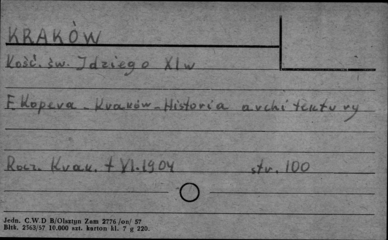 KRAKÓW
Kość. św. Idziego XI w
F. Kopera - Kraków - Historia architektury
Rocz. Krak. t VI. 1904 str. 100
Jedn. C.W.D B/Olsztyn Zam 2776 /on/ 57
Bltk. 2563/57 10.000 szt. karton kl. 7 g 220.